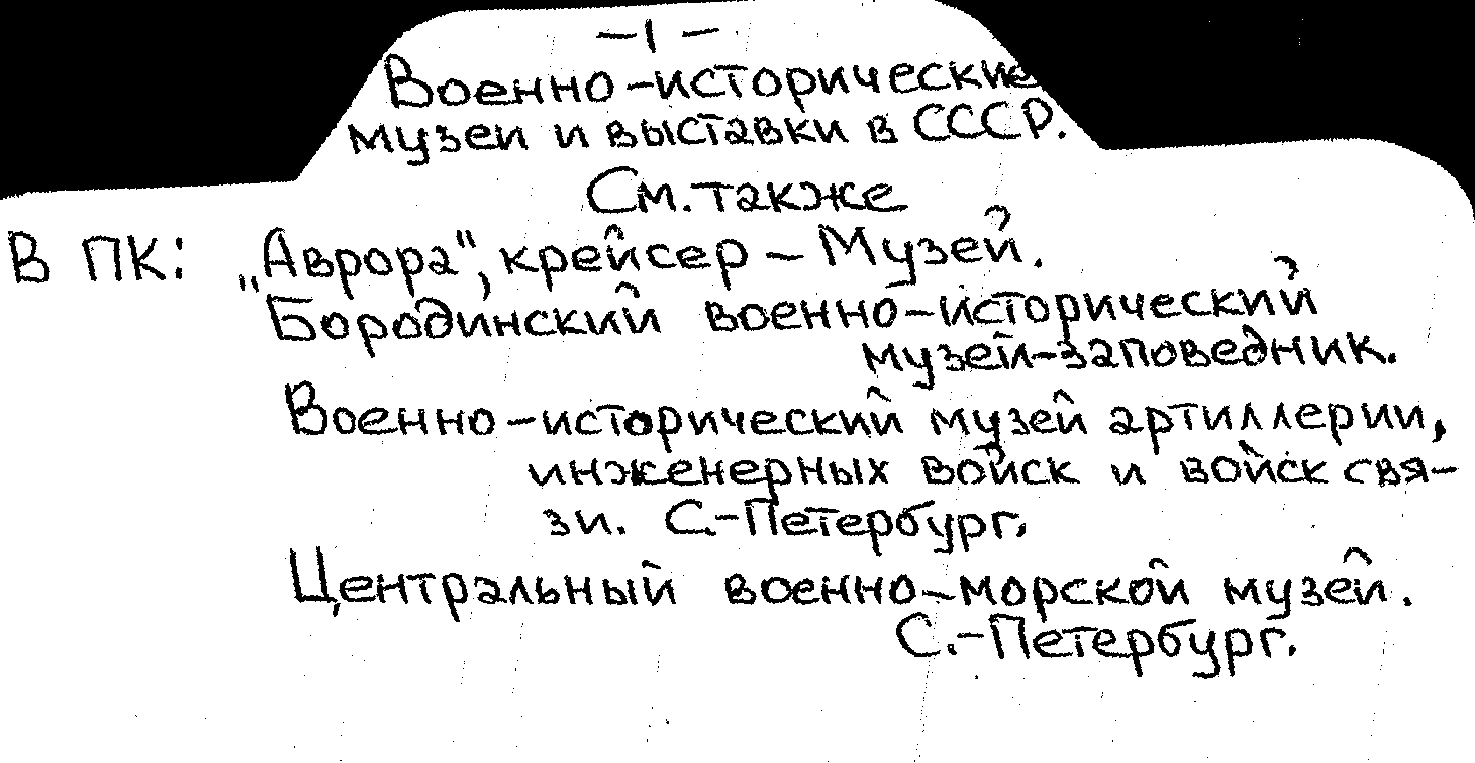 –1–
Военно-исторические
музеи и выставки в СССР.
См. также
В ПК: „Аврора", крейсер – Музей.
Бородинский военно-исторический
музей-заповедник.
Военно-исторический музей артиллерии,
инженерных войск и войск свя-
зи. С.-Петербург.
Центральный военно-морской музей.
С.-Петербург.